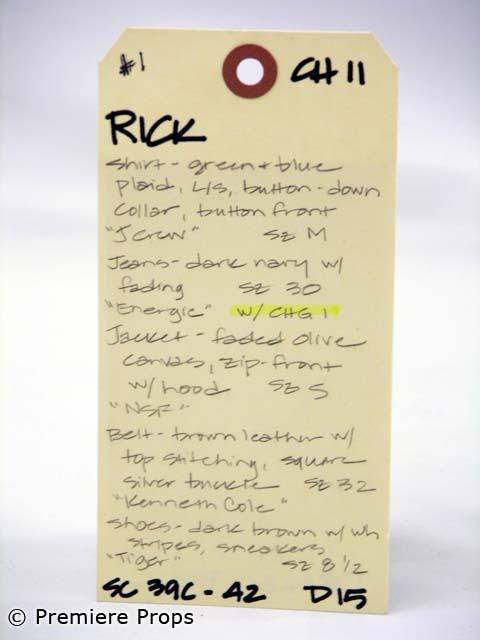 #1 CH 11
RICK
Shirt - green + blue
plaid, L/S, button-down
collar, button front
"J Crew" sz M
Jeans - dark navy w/
fading sz 30
"Energie" w/ CHG 1
Jacket - faded olive
canvas, zip-front
w/ hood sz S
"NSF"
Belt - brown leather w/
top stitching, square
silver buckle sz 32
"Kenneth Cole"
Shoes - dark brown w/ wh
stripes, sneakers
"Tiger" sz 8 1/2
SC 39C - 42 D15
© Premiere Props